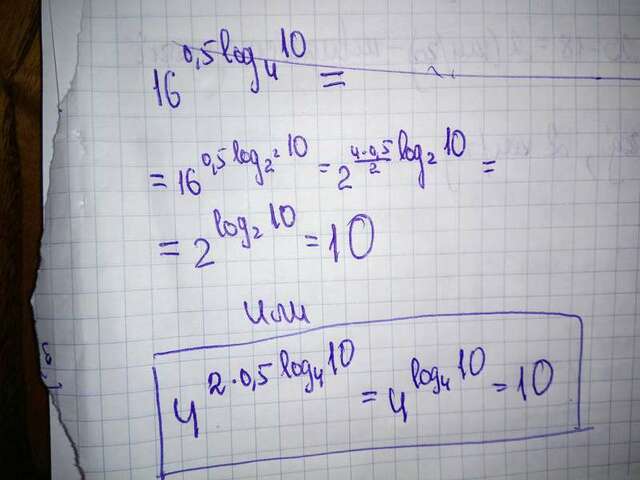 16^{0,5 log_4 10} =
= 16^{0,5 log_{2^2} 10} = 2^{\frac{4·0,5}{2} log_2 10} =
= 2^{log_2 10} = 10
или
4^{2·0,5 log_4 10} = 4^{log_4 10} = 10